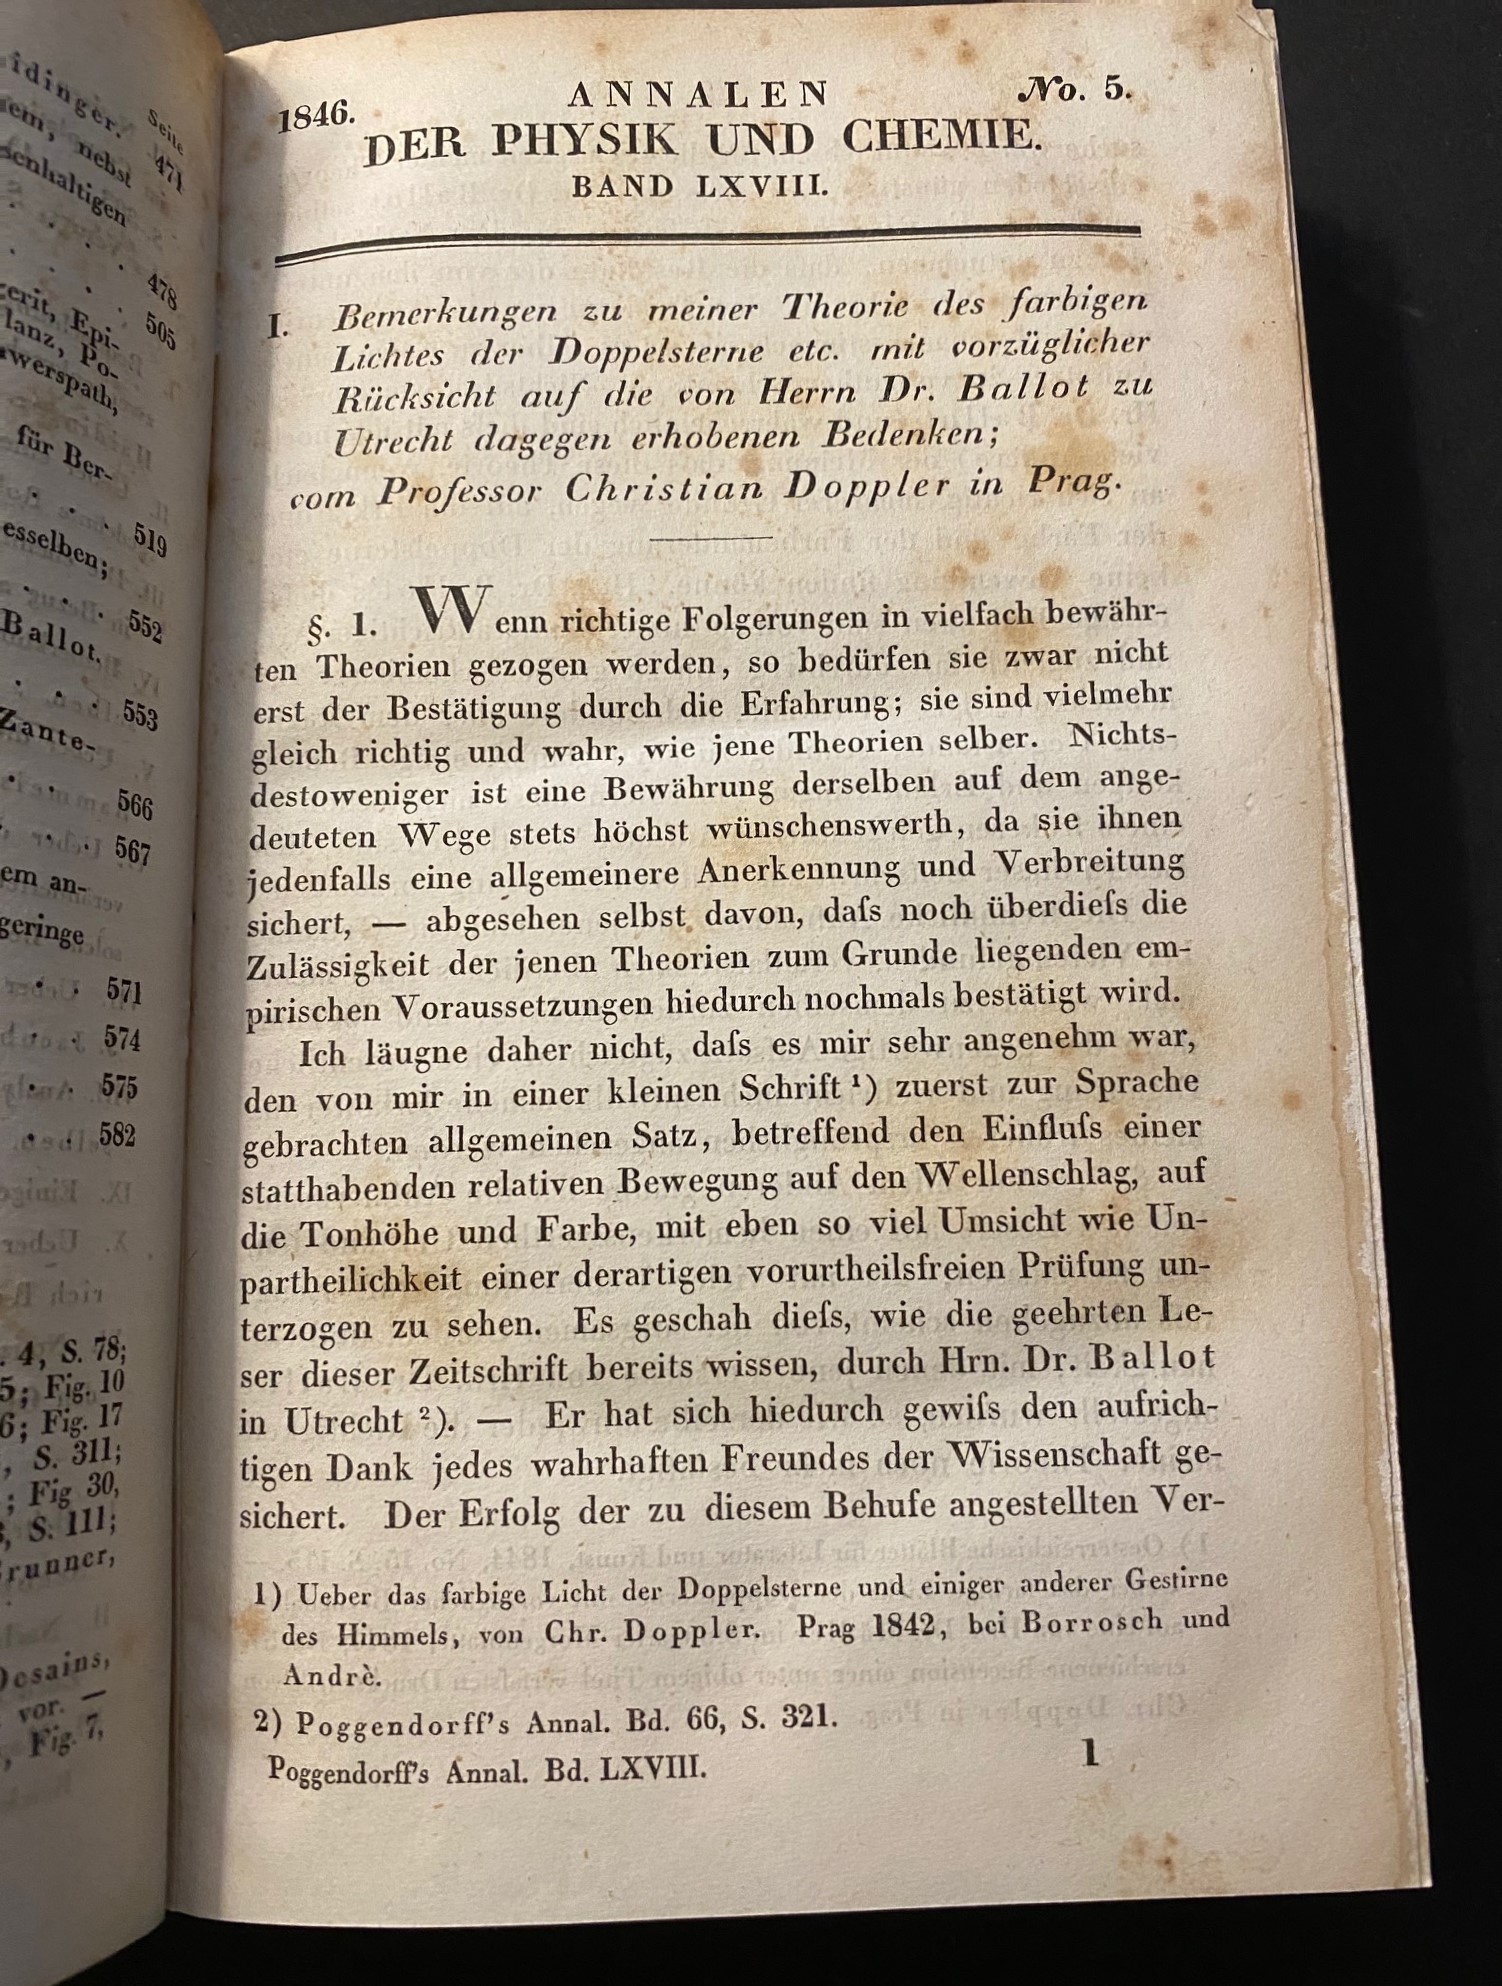 idinger.
Seite
471
nebst
senhaltigen
478
505
Epi-
Po-
für Ber-
519
esselben;
552
Ballot.
553
Zante-
566
567
em an-
geringe
571
574
575
582
4, S. 78;
5; Fig. 10
6; Fig. 17
S. 311;
; Fig 30,
S. 111;
vor. —
Fig. 7,
1846.
ANNALEN
No. 5.
DER PHYSIK UND CHEMIE.
BAND LXVIII.
I. Bemerkungen zu meiner Theorie des farbigen
Lichtes der Doppelsterne etc. mit vorzüglicher
Rücksicht auf die von Herrn Dr. Ballot zu
Utrecht dagegen erhobenen Bedenken;
vom Professor Christian Doppler in Prag.
§. 1. Wenn richtige Folgerungen in vielfach bewähr-
ten Theorien gezogen werden, so bedürfen sie zwar nicht
erst der Bestätigung durch die Erfahrung; sie sind vielmehr
gleich richtig und wahr, wie jene Theorien selber. Nichts-
destoweniger ist eine Bewährung derselben auf dem ange-
deuteten Wege stets höchst wünschenswerth, da sie ihnen
jedenfalls eine allgemeinere Anerkennung und Verbreitung
sichert, — abgesehen selbst davon, daſs noch überdieſs die
Zulässigkeit der jenen Theorien zum Grunde liegenden em-
pirischen Voraussetzungen hiedurch nochmals bestätigt wird.
Ich läugne daher nicht, daſs es mir sehr angenehm war,
den von mir in einer kleinen Schrift ¹) zuerst zur Sprache
gebrachten allgemeinen Satz, betreffend den Einfluſs einer
statthabenden relativen Bewegung auf den Wellenschlag, auf
die Tonhöhe und Farbe, mit eben so viel Umsicht wie Un-
partheilichkeit einer derartigen vorurtheilsfreien Prüfung un-
terzogen zu sehen. Es geschah dieſs, wie die geehrten Le-
ser dieser Zeitschrift bereits wissen, durch Hrn. Dr. Ballot
in Utrecht ²). — Er hat sich hiedurch gewiſs den aufrich-
tigen Dank jedes wahrhaften Freundes der Wissenschaft ge-
sichert. Der Erfolg der zu diesem Behufe angestellten Ver-
1) Ueber das farbige Licht der Doppelsterne und einiger anderer Gestirne
des Himmels, von Chr. Doppler. Prag 1842, bei Borrosch und
Andrè.
2) Poggendorff's Annal. Bd. 66, S. 321.
Poggendorff's Annal. Bd. LXVIII.
1